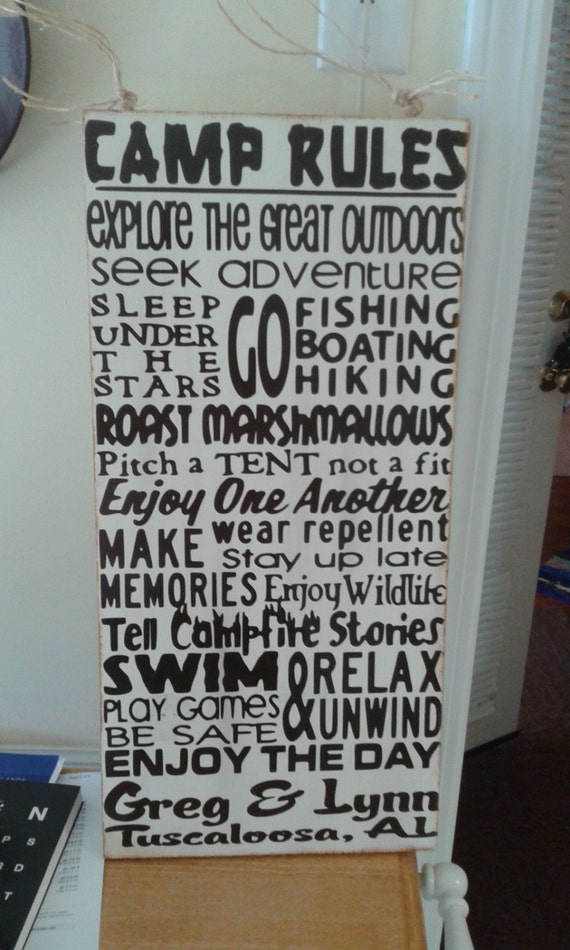 CAMP RULES
explore THE Great OUTDOORS
seek adventure
SLEEP
UNDER
THE
STARS
GO
FISHING
BOATING
HIKING
ROAST MARSHMALLOWS
Pitch a TENT not a fit
Enjoy One Another
MAKE
MEMORIES
wear repellent
Stay up late
Enjoy Wildlife
Tell Campfire Stories
SWIM
PLAY Games
BE SAFE
& RELAX
UNWIND
ENJOY THE DAY
Greg & Lynn
Tuscaloosa, AL
N
P S
R D
T